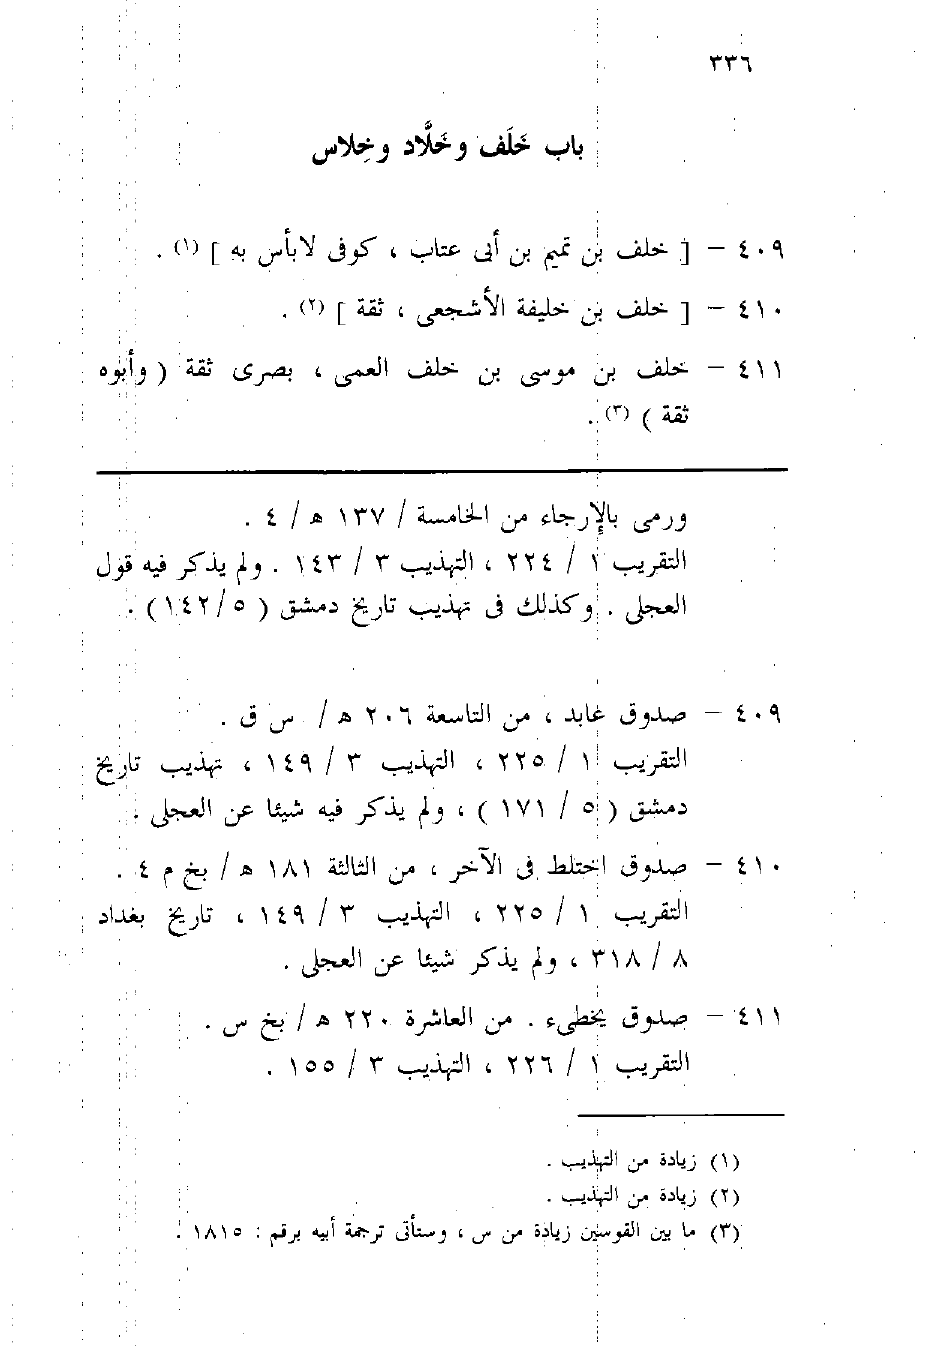 ٣٣٦
باب خَلَف وخَلَّاد وخِلاس
٤٠٩ – [ خلف بن تميم بن أبى عتاب ، كوفى لا بأس به ] (١) .
٤١٠ – [ خلف بن خليفة الأشجعى ، ثقة ] (٢) .
٤١١ – خلف بن موسى بن خلف العمى ، بصرى ثقة ( وأبوه
ثقة ) (٣) .
ورمى بالإرجاء من الخامسة / ١٣٧ هـ / ٤ .
التقريب ١ / ٢٢٤ ، التهذيب ٣ / ١٤٣ . ولم يذكر فيه قول
العجلى . وكذلك فى تهذيب تاريخ دمشق ( ٥ / ١٤٢ ) .
٤٠٩ – صدوق عابد ، من التاسعة ٢٠٦ هـ / س ق .
التقريب ١ / ٢٢٥ ، التهذيب ٣ / ١٤٩ ، تهذيب تاريخ
دمشق ( ٥ / ١٧١ ) ، ولم يذكر فيه شيئا عن العجلى .
٤١٠ – صدوق اختلط فى الآخر ، من الثالثة ١٨١ هـ / بخ م ٤ .
التقريب ١ / ٢٢٥ ، التهذيب ٣ / ١٤٩ ، تاريخ بغداد
٨ / ٣١٨ ، ولم يذكر شيئا عن العجلى .
٤١١ – صدوق يخطىء . من العاشرة ٢٢٠ هـ / بخ س .
التقريب ١ / ٢٢٦ ، التهذيب ٣ / ١٥٥ .
(١) زيادة من التهذيب .
(٢) زيادة من التهذيب .
(٣) ما بين القوسين زيادة من س ، وستأتى ترجمة أبيه برقم : ١٨١٥ .